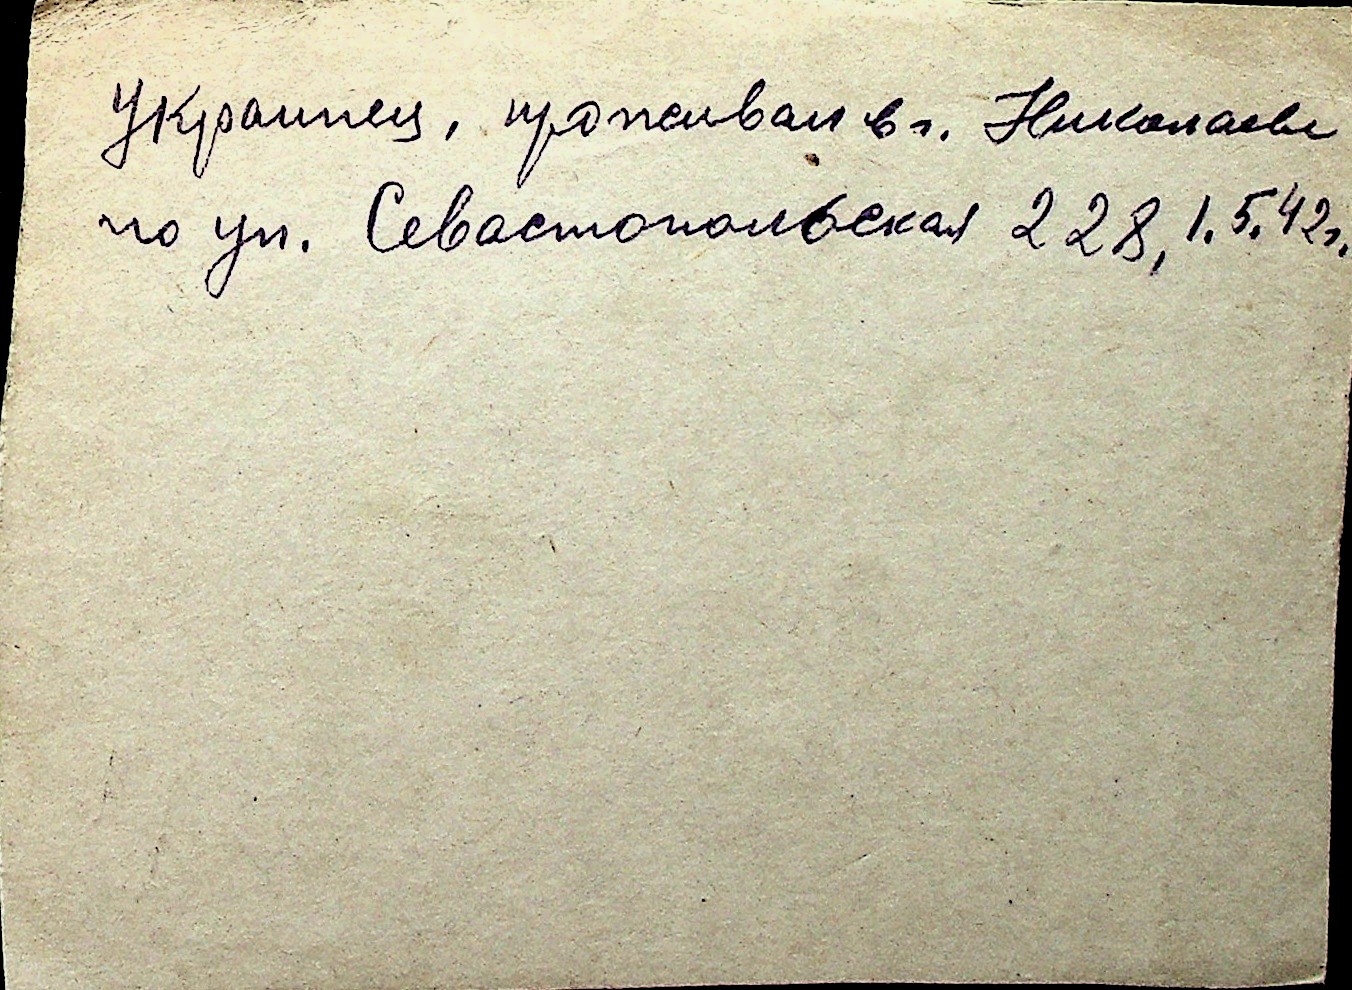 Украинец, проживал в г. Николаеве
по ул. Севастопольская 228, 1.5.42г.